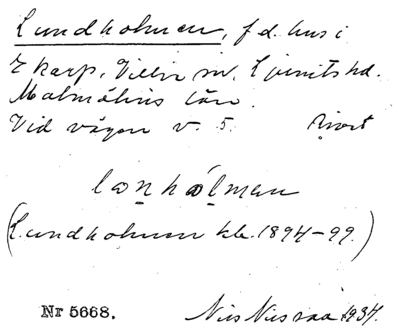 Lundholmen, f.d. hus i
Ekarp, Villie sn. Ljunits hd.
Malmöhus län.
Vid vägen v. 5. rivet
lo̲n̲hól̲men
(Lundholmen kb. 1894-99.)
Nr 5668. Nils Nilsson 1937.